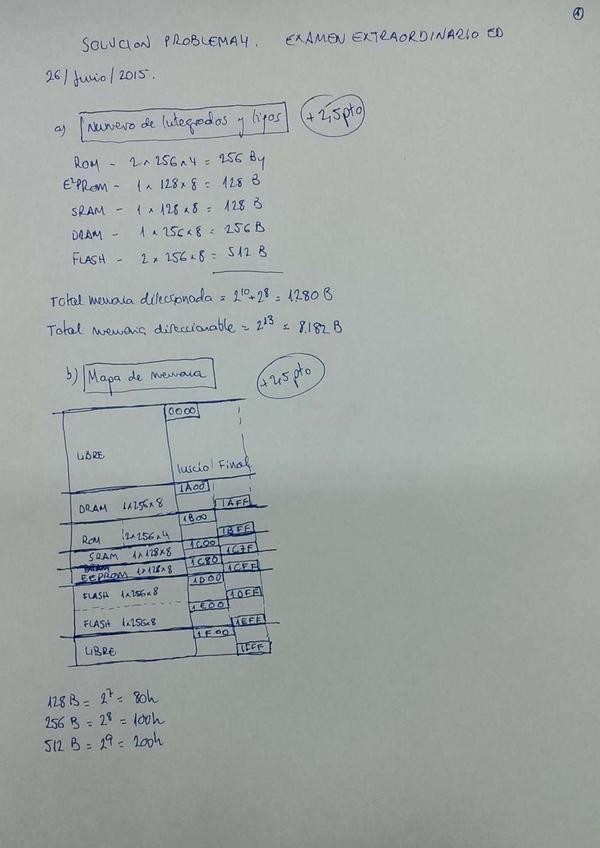 1
SOLUCION PROBLEMA 4. EXAMEN EXTRAORDINARIO ED
26/Junio/2015.
a) Numero de Integrados y tipos +2,5 pto
ROM - 2 x 256 x 4 = 256 By
E²PROM - 1 x 128 x 8 = 128 B
SRAM - 1 x 128 x 8 = 128 B
DRAM - 1 x 256 x 8 = 256 B
FLASH - 2 x 256 x 8 = 512 B
Total memoria direccionada = 2^10 + 2^8 = 1280 B
Total memoria direccionable = 2^13 = 8.182 B
b) Mapa de memoria +2,5 pto
0000
LIBRE
Inicio Final
1A00
DRAM 1x256x8 1AFF
1B00
ROM 2x256x4 1BFF
1C00
SRAM 1x128x8 1C7F
1C80
EEPROM 1x128x8 1CFF
1D00
FLASH 1x256x8 1DFF
1E00
FLASH 1x256x8 1EFF
1F00
LIBRE 1FFF
128 B = 2^7 = 80h
256 B = 2^8 = 100h
512 B = 2^9 = 200h